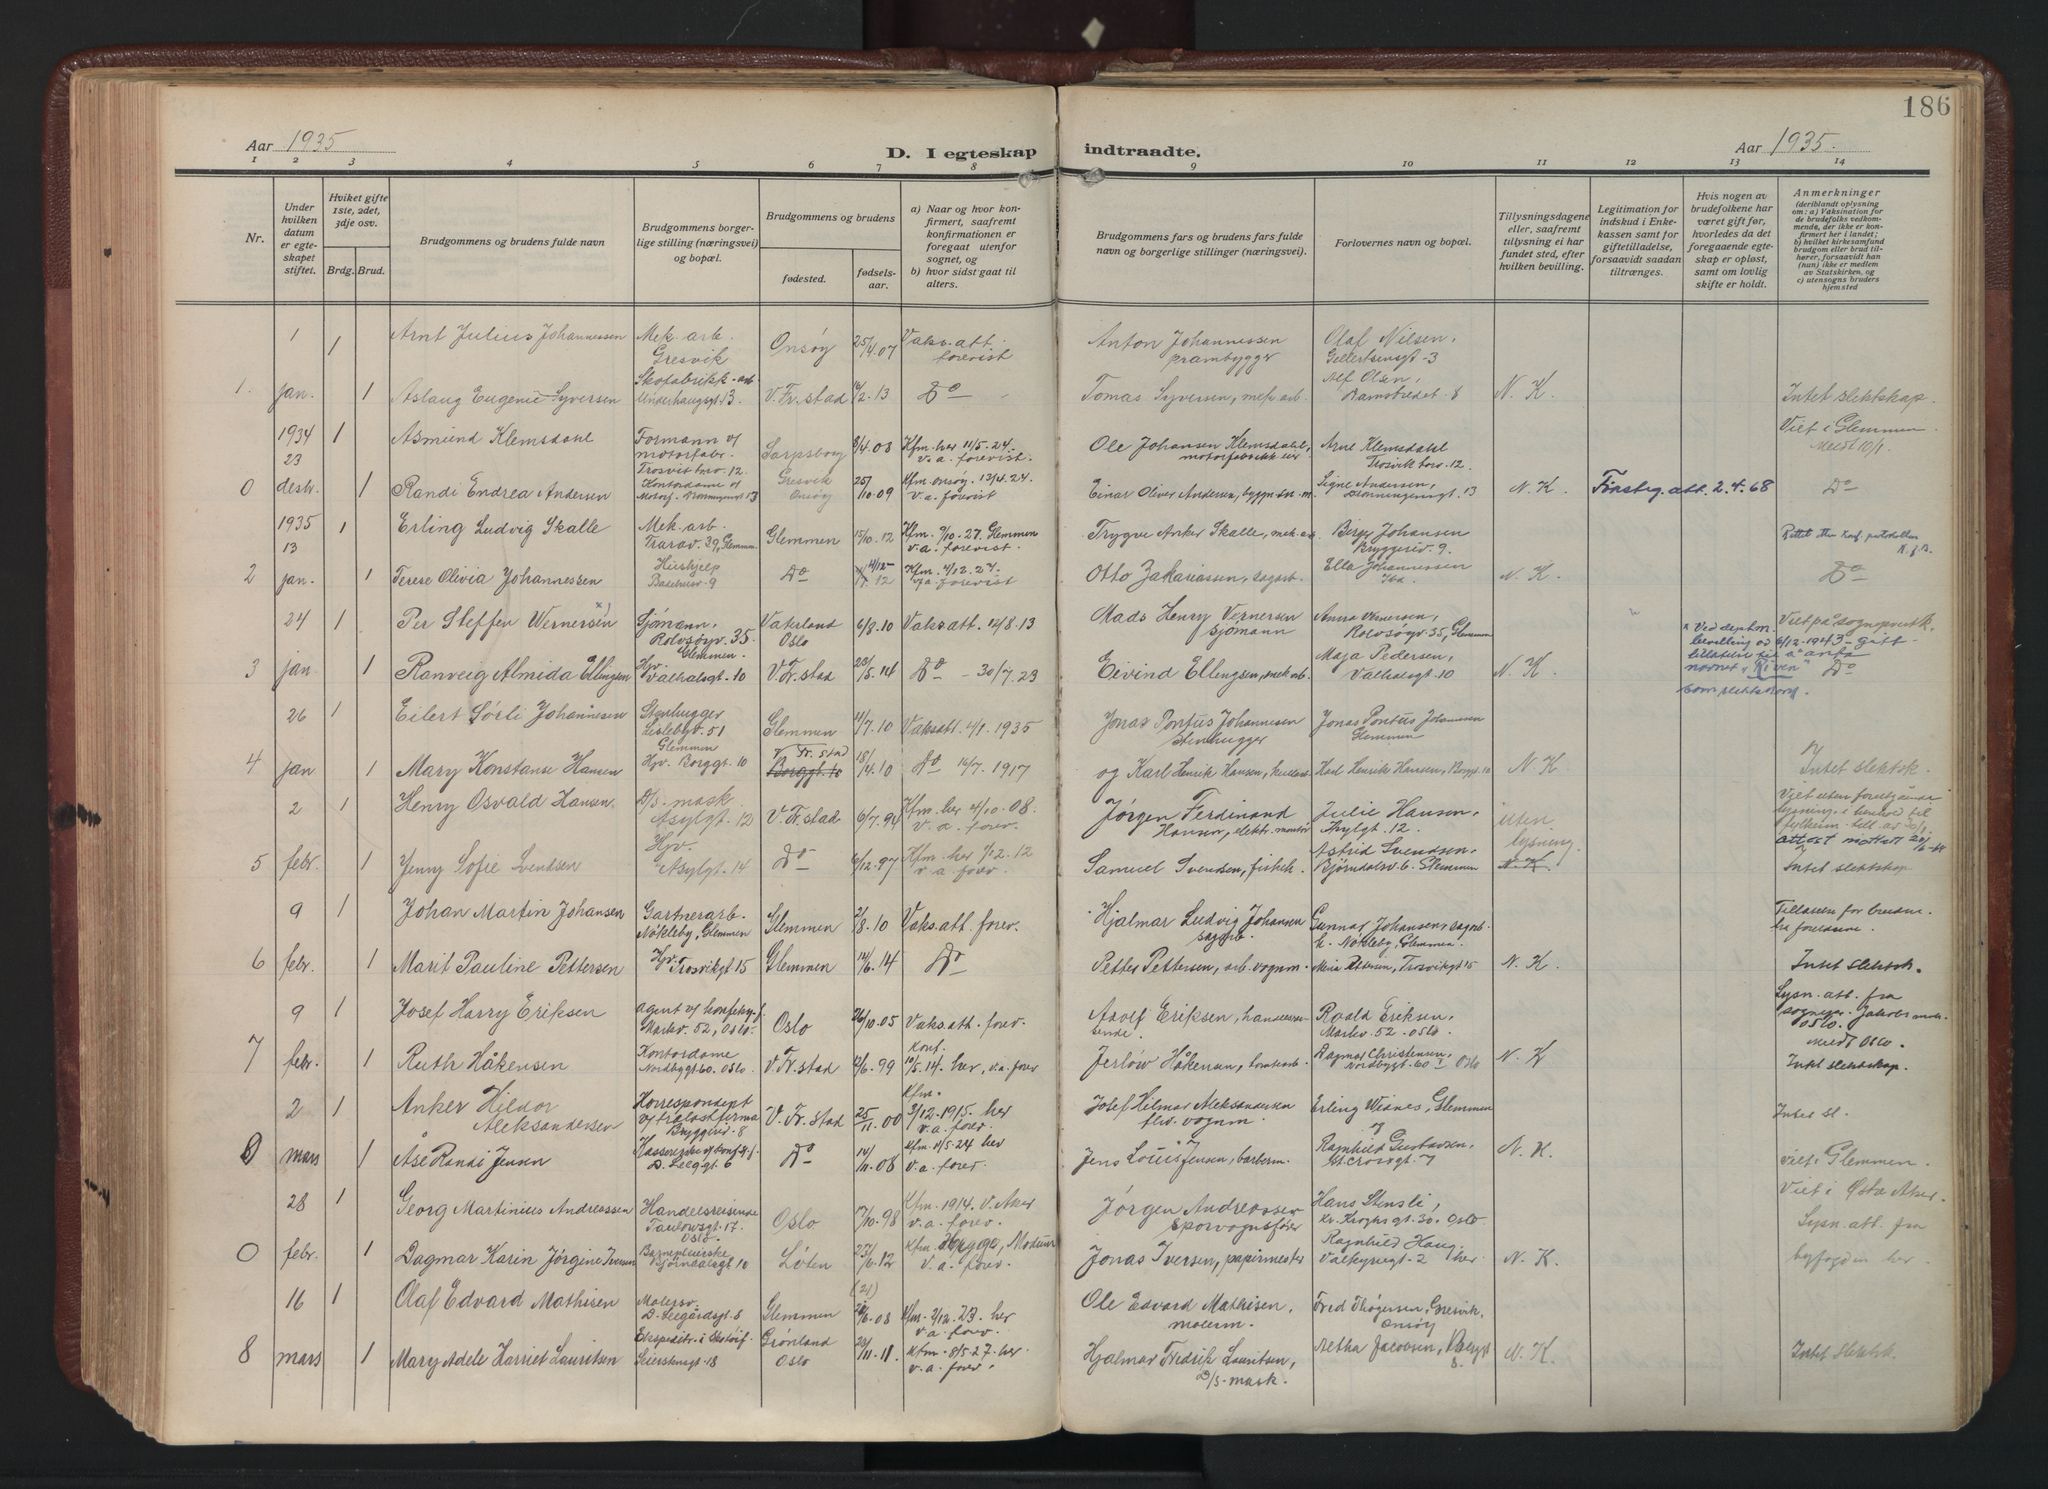 186
Aar 1935
D. I egteskap
indtraadte.
Aar 1935.
1 2 3 4 5 6 7 8 9 10 11 12 13 14
Nr.
Under hvilken datum er egteskapet stiftet.
Hviket gifte 1ste, 2det, 3dje osv.
Brdg. Brud.
Brudgommens og brudens fulde navn
Brudgommens borgerlige stilling (næringsvei) og bopæl.
Brudgommens og brudens
fødested.
fødselsaar.
a) Naar og hvor konfirmert, saafremt konfirmationen er foregaat utenfor sognet, og
b) hvor sidst gaat til alters.
Brudgommens fars og brudens fars fulde navn og borgerlige stillinger (næringsvei).
Forlovernes navn og bopæl.
Tillysningsdagene eller, saafremt tillysning ei har fundet sted, efter hvilken bevilling.
Legitimation for indskud i Enkekassen samt for giftetilladelse, forsaavidt saadan tiltrænges.
Hvis nogen av brudefolkene har været gift før, hvorledes da det foregaaende egteskap er opløst, samt om lovlig skifte er holdt.
Anmerkninger (deriblandt oplysning om: a) Vaksination for de brudefolks vedkommende, der ikke er konfirmert her i landet; b) hvilket kirkesamfund brudgom eller brud tilhører, forsaavidt han (hun) ikke er medlem av Statskirken, og c) utensogns bruders hjemsted
1 1 Arnt Julius Johannessen Mek. arb. Gresvik Onsøy 25/4.07 Vaks. att. forevist Anton Johannessen prambygger Olaf Nilsen, Gellertsensgt. 3
1. jan. 1 Aslaug Eugenie Syversen Skofabrikk-arb. Underhaugsgt. 13 V. Fr.stad 16/2.13 Do Tomas Syversen, mek. arb. Alf Olsen, 8 N. K. Intet slektskap.
1934 23 1 Asmund Klemsdahl Formann v/ motorfabr. Trosvikbrv. 12 Sarpsborg 8/4.08 Kfm. her 11/5.24. v. a. forevist Ole Johansen Klemsdahl, motorfabrikkeier Arne Klemsdahl Trosvik brv. 12 Viet i Glemmen Medt 10/1
0 desbr. 1 Randi Endrea Andersen Kontordame v/ Motorf. 13 Gresvik Onsøy 25/10.09 Kfm. Onsøy. 13/4.24. v. a. forevist Einar Oliver Andersen, byggn. sn. m. Signe Andersen, 13 N. K. Finstbg. att. 2.4.68 Do
1935 13 1 Erling Ludvig Skalle Mek. arb. Trarav. 39, Glemmen Glemmen 15/10.12 Kfm. 9/10.27. Glemmen v. a. forevist Trygve Anker Skalle, mek. arb. Birger Johansen Bryggeriv. 9. Rettet efter konf. protokollen K. J. B.
2 jan. 1 Terese Olivia Johannessen Hushjelp 9 Do 12 Kfm. 4/12.27. v. a. forevist Otto Zakariassen, sagarb. Ella Johannessen Ibd. N. K. Do
24 1 Per Steffen Wernersen x) Sjømann, Rolvsøyv. 35. Glemmen. Vaterland Oslo 6/8.10 Vaks. att. 12/8.13 Mads Henry Vernersen sjømann Anna Vernersen, Rolvsøyv. 35, Glemmen x Ved deptm. bevilling av 6/12.1943 gitt tillatelse til å anta navnet "Riven" som slektsnavn Viet på sogneprestk.
3 jan. 1 Ranveig Almida Ellingsen Hjv. Valhalsgt. 10 V. Fr.stad 23/5.14 Do - 30/7.23 Eivind Ellingsen, mek. arb. Maja Pedersen, Valhalsgt. 10 N. K. Do
26 1 Eilert Sørli Johannesen Stenhugger Lislebyv. 51 Glemmen Glemmen 11/7.10 Vaks. att. 4/1.1935 Jonas Pontus Johannesen stenhugger Jonas Pontus Johannesen Glemmen
4 jan 1 Mary Konstanse Hansen Hjv. Borggt. 10 V. Fr. stad 18/14.10 Do 14/7.1917 og Karl Henrik Hansen, Karl Henrik Hansen, Borggt. 10 N. K. Intet slektsk.
2 1 Henry Osvald Hansen D/S. mask. Asylgt. 12 V. Fr. stad 6/7.94 Kfm. her 4/10.08. v. a. forev. Jørgen Ferdinand Hansen, elektr. montør Julie Hansen, Asylgt. 12. uten lysning. Viet uten forutgående lysning i henhold til fylkesm. till. av 30/1 attest mottat
5 febr. 1 Jenny Sofie Svendsen Hjv. Asylgt. 14 Do 6/12.97 Kfm. her 1/12.12 v. a. forev. Samuel Svendsen, fiskeh. Astrid Svendsen, Bjørndalsv. 6. Glemmen N. K. Intet slektskap
9 1 Johan Martin Johansen Gartnerarb. Nøkleby, Glemmen Glemmen 2/8.10 Vaks. att. forev. Hjalmar Ludvig Johansen sagarb. Gunnar Johansen, sagarb. Nøkleby, Glemmen. Tillatelse for bruden fra foreldrene.
6 febr. 1 Marit Pauline Pettersen Hjv. Trosvikgt. 15 Glemmen 14/6.14 Do Petter Pettersen, arb. vognm. Maria Pettersen, Trosvikgt. 15 N. K. Intet slektsk.
9 1 Josef Harry Eriksen Agent v/ konfeks.f. Markv. 52, Oslo. Oslo 26/10.05 Vaks. att. forev. Adolf Eriksen, handelsreisende. Roald Eriksen, Markv. 52. Oslo. Lysn. att. fra sognepr. Jakobs men. Oslo. Medt Oslo
7 febr. 1 Ruth Håkensen Kontordame Nordbygt 60. Oslo V. Fr. stad 12/6.99 Konf. 10/5.14. her, v. a. forev Jerløw Håkensen, tomtearb. Dagmar Christensen, Nordbygt. 60 I Oslo N. K Intet slektskap.
2 1 Anker Hildor Aleksandersen Korrespondent v/ trelastfirma Bryggeriv. 8 V. Fr. stad 25/11.00 Kfm. 3/12.1915. her v. a. forev. Josef Hilmar Aleksandersen flv. vognm. Erling Widnes, Glemmen og Intet sl.
0 mars 1 Åse Randi Jensen Kassererske v/ konf.f. D. Leeggt 6 Do 14/11.08 Kfm. 11/5.24 her v. a. forev. Jens Louis Jensen, barberm. Ragnhild Gustavsen, St. Crossgt. 7 N. K. viet i Glemmen.
28 1 Georg Martinius Andreassen Handelsreisende Paulowsgt. 17. Oslo Oslo 7/10.98 Kfm. 1914. V. Aker v. a. forev. Jørgen Andreassen sporvognsfører Hans Stensli, Kr. Kroghs gt. 30. Oslo Viet i Østre Aker. Lysn. att. fra
0 febr. 1 Dagmar Karin Jørgine Iversen Barnepleierske Bjørnaalsgt 10 Løten 27/6.12 Kfm. Heggen, Modum v. a. forev. Jonas Iversen, papirmester Ragnhild Haug, Valkyriegt. 2 her N. K. byfogden her.
16 1 Olaf Edvard Mathisen Malersv. D. Leegårdsgt. 8 Glemmen (21) 20/6.08 Kfm. 2/12.23. her v. a. forev. Ole Edvard Mathisen, malerm. Fred Thøgersen, Gresvik, Onsøy
8 mars 1 Mary Adele Harriet Lauritsen Ekspeditr. i Skotøif. Seiersknsgt. 18 Grønland Oslo 23/11.11. Kfm. 8/5.27. her v. a. forev. Hjalmar Fredrik Lauritsen, D/S.-mask. Aetha Jacobsen, 8. N. K. Intet slektsk.